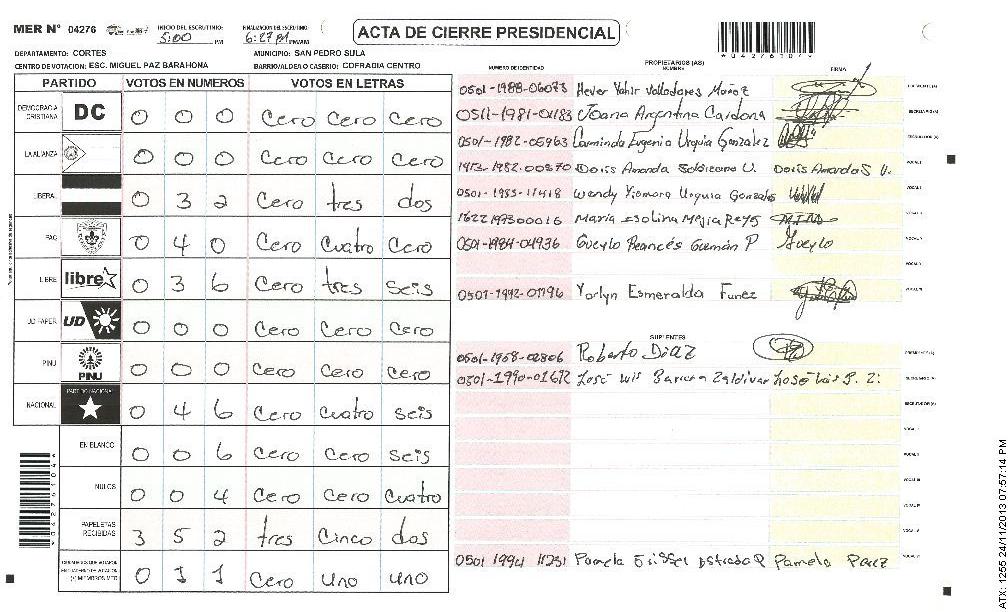 MER Nº 04276 INICIO DEL ESCRUTINIO: 5:00 PM FINALIZACIÓN DEL ESCRUTINIO: 6:27 PM PM/AM
ACTA DE CIERRE PRESIDENCIAL
DEPARTAMENTO: CORTES MUNICIPIO: SAN PEDRO SULA
CENTRO DE VOTACION: ESC. MIGUEL PAZ BARAHONA BARRIO/ALDEA O CASERIO: COFRADIA CENTRO
PARTIDO VOTOS EN NUMEROS VOTOS EN LETRAS
DEMOCRACIA CRISTIANA DC 0 0 0 Cero Cero Cero
LA ALIANZA 0 0 0 Cero Cero Cero
LIBERAL 0 3 2 Cero tres dos
PAC 0 4 0 Cero Cuatro Cero
LIBRE libre 0 3 6 Cero tres Seis
UD FAPER UD 0 0 0 Cero Cero Cero
PINU PINU 0 0 0 Cero Cero Cero
NACIONAL PARTIDO NACIONAL 0 4 6 Cero Cuatro Seis
EN BLANCO 0 0 6 Cero Cero Seis
NULOS 0 0 4 Cero Cero Cuatro
PAPELETAS RECIBIDAS 3 5 2 tres Cinco dos
0 1 1 Cero uno uno
NUMERO DE IDENTIDAD PROPIETARIOS (AS) NOMBRE FIRMA
0501-1988-06073 Hever Yahir Valladares Muñoz
0511-1981-01183 Joana Argentina Cardona
0501-1982-05963 Carminda Eugenia Urquia Gonzalez
1413-1982-00870 Doris Amanda U. Doris Amanda S U.
0501-1985-11418 Wendy Xiomara Urquia Gonzales
1622199300016 Maria Esolina Mejia Reyes
0501-1984-04936 Gueylo Guzmán P Gueylo
0501-1992-01796 Yorlyn Esmeralda Funez
SUPLENTES
0501-1958-02806 Roberto DíAZ
0501-1990-01672 José Luis Barrera Zaldivar José Luis B. Z.
0501 1994 11231 Pamela Pamela Paez
*04276104*
ATX: 1255 24/11/2013 07:57:14 PM